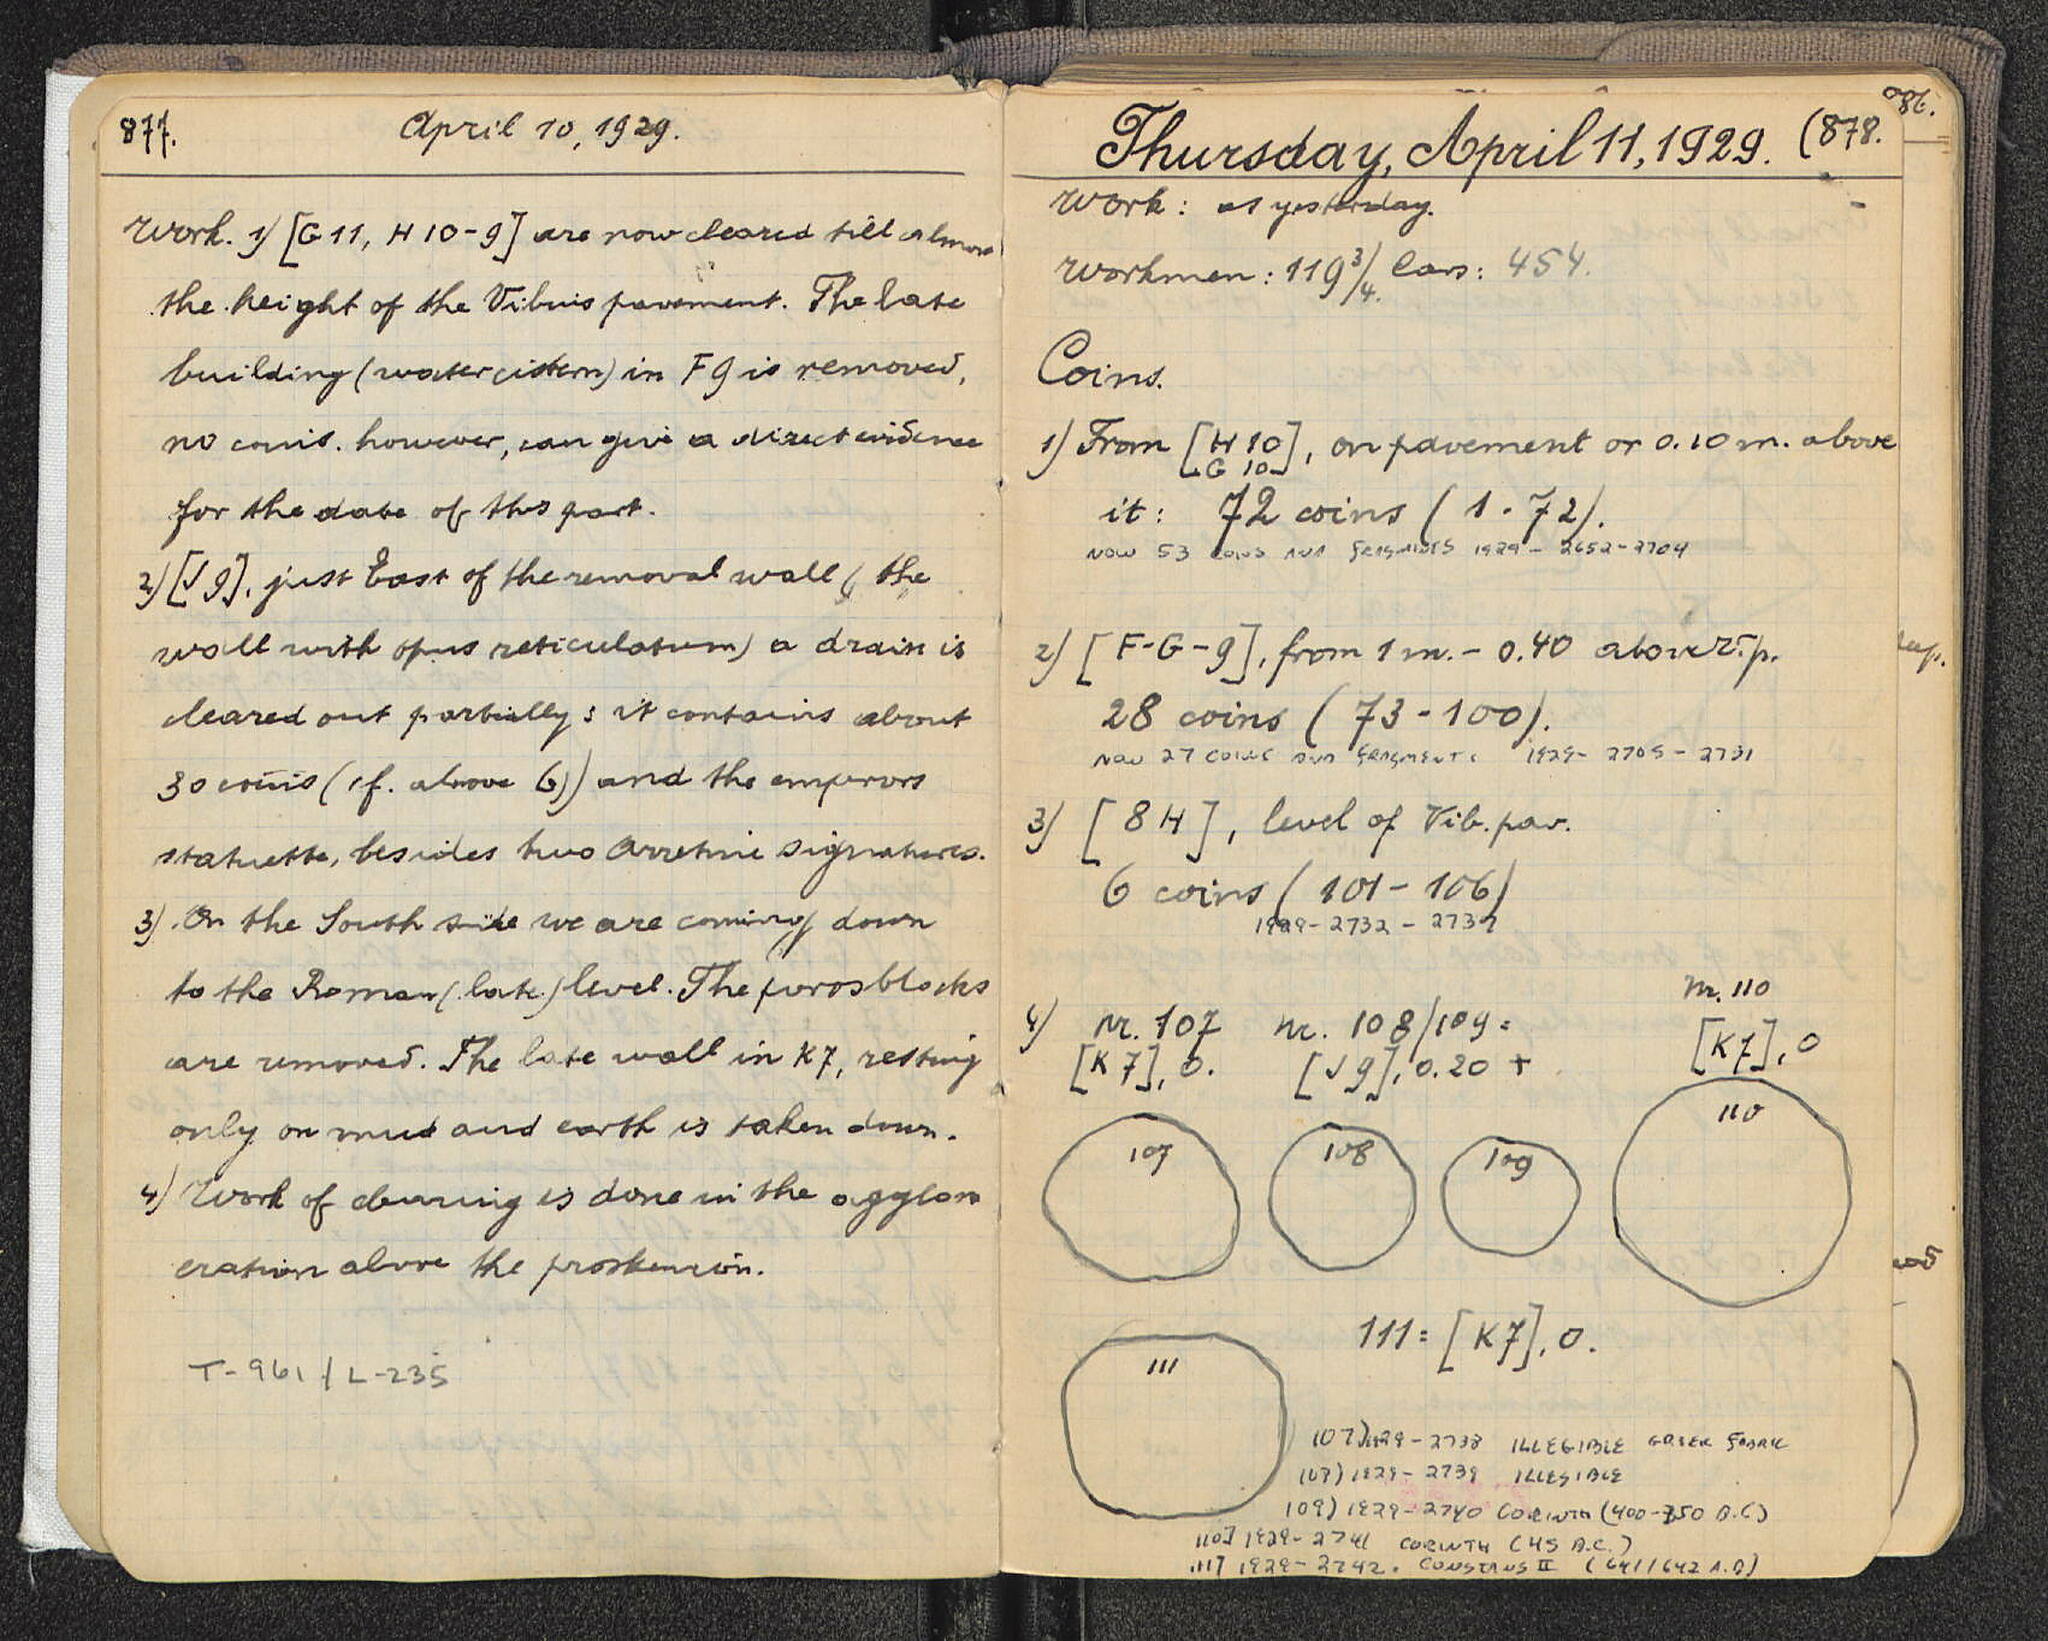 877.
April 10, 1929.
Work. 1) [G 11, H 10-9] are now cleared till almost
the height of the Vibius pavement. The late
building (water cistern) in F 9 is removed,
no coins. however, can give a direct evidence
for the date of this part.
2) [J 9], just East of the removal wall ( the
wall with opus reticulatum) a drain is
cleared out partially; it contains about
30 coins (cf. above 6)) and the emperors
statuette, besides two Arretine signatures.
3) On the South side we are coming down
to the Roman (late) level. The poros blocks
are removed. The late wall in K 7, resting
only on mud and earth is taken down.
4) Work of clearing is done in the agglom
eration above the proskenion.
T-961 / L-235
Thursday, April 11, 1929. (878.
Work: as yesterday.
Workmen: 119 3/4. Cars: 454.
Coins.
1) From [H 10
G 10], on pavement or 0.10 m. above
it: 72 coins (1-72).
NOW 53 COINS AND FRAGMENTS 1929- 2652-2704
2) [F-G-9], from 1 m. - 0.40 above v.p.
28 coins (73-100).
NOW 27 COINS AND FRAGMENTS 1929- 2705 - 2731
3) [8 H], level of Vib. pav.
6 coins (101-106)
1929-2732 - 2737
4) Nr. 107 Nr. 108/109= Nr. 110
[K 7], 0. [J 9], 0.20 + [K 7], 0
107 108 109 110
111 = [K 7], 0.
111
107) 1929-2738 ILLEGIBLE GREEK FABRIC
108) 1929-2739 ILLEGIBLE
109) 1929-2740 CORINTH (400-350 B.C)
110) 1929-2741 CORINTH (45 B.C.)
111) 1929-2742. CONSTANS II (641/642 A.D)